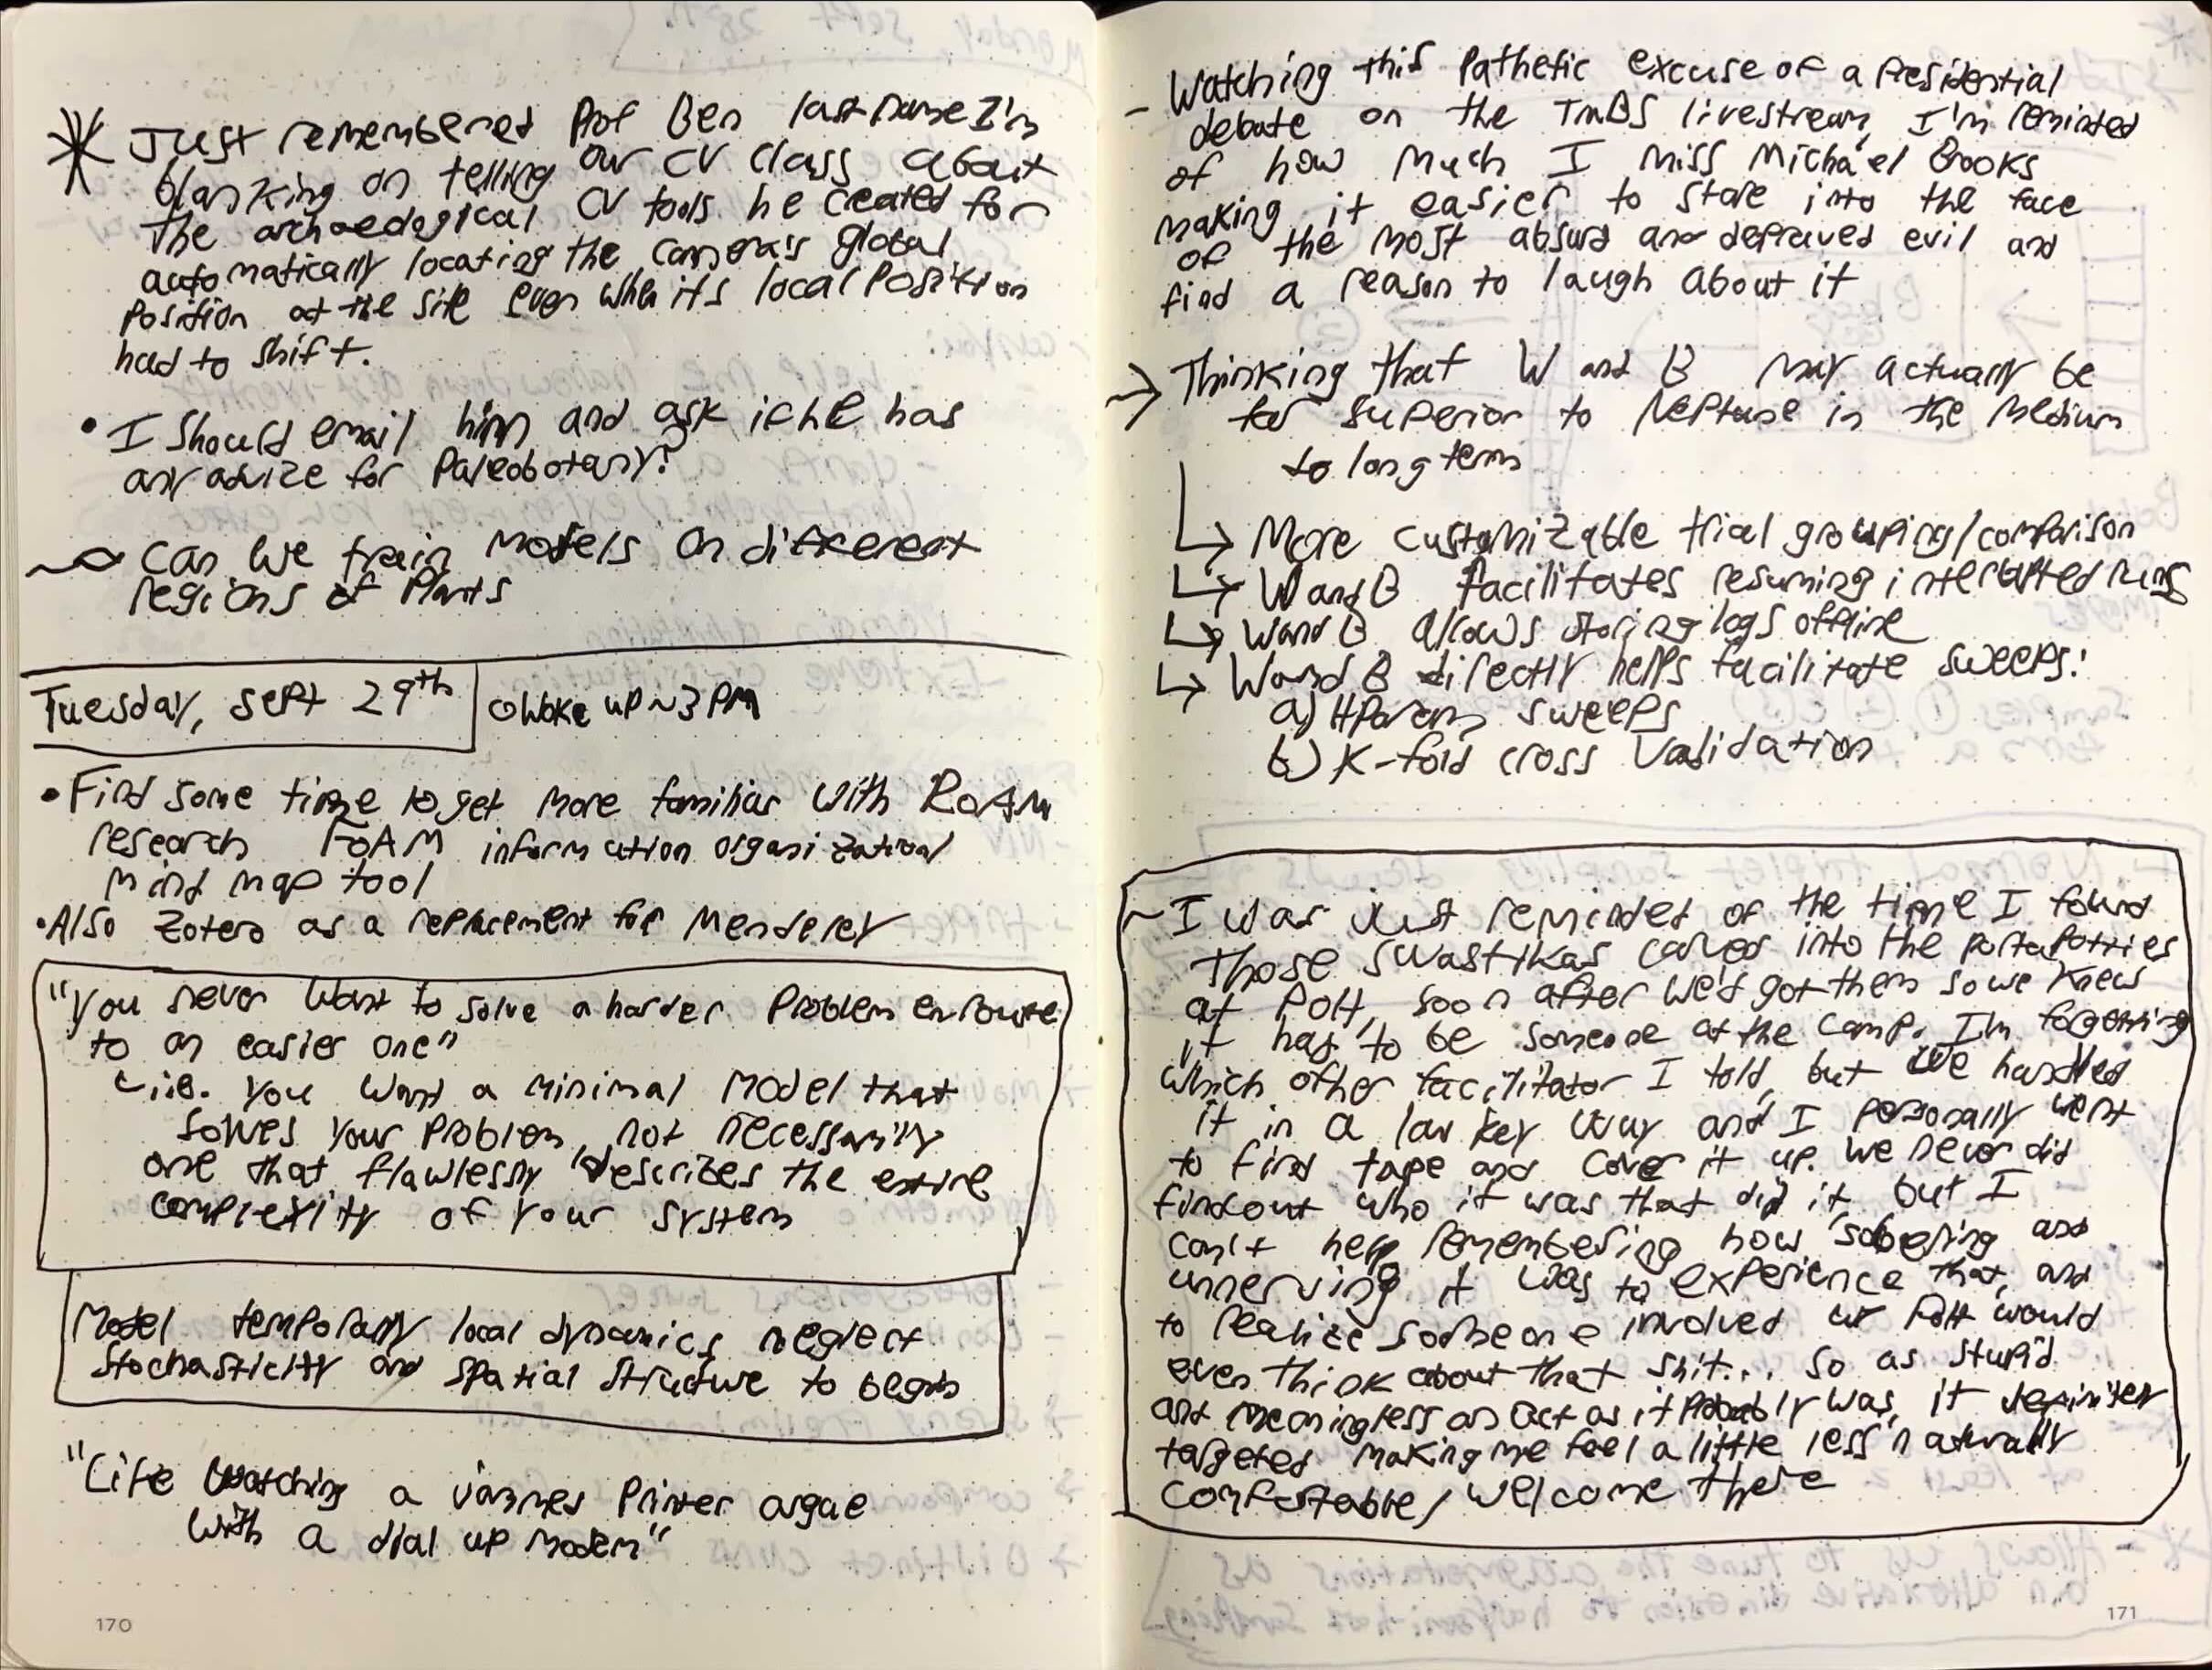 Just remembered Prof Ben last name I'm
blanking on telling our CV class about
the archaeological CV tools he created for
automatically locating the camera's global
position at the site even when its local position
had to shift.
• I should email him and ask if he has
any advice for Paleobotany?
Can we train models on different
regions of plants
Tuesday, Sept 29th
Woke up ~3 PM
• Find some time to get more familiar with ROAM
research FOAM information organizational
mind map tool
• Also Zotero as a replacement for Mendeley
"You never want to solve a harder problem enroute
to an easier one"
i.e. you want a minimal model that
solves your problem, not necessarily
one that flawlessly describes the entire
complexity of your system
Model temporally local dynamics neglect
stochasticity and spatial structure to begin
"Like watching a jammed printer argue
with a dial up modem"
170
- Watching this pathetic excuse of a Presidential
debate on the TMBS livestream, I'm reminded
of how much I miss Michael Brooks
making it easier to stare into the face
of the most absurd and depraved evil and
find a reason to laugh about it
→ Thinking that W and B may actually be
far superior to Neptune in the medium
to long term
↳ More customizable trial grouping/comparison
↳ W and B facilitates resuming interrupted runs
↳ W and B allows storing logs offline
↳ W and B directly helps facilitate sweeps!
a) HParam sweeps
b) K-fold cross validation
~ I was just reminded of the time I found
those swastikas carved into the portapotties
at soon after we'd got them so we knew
it had to be someone at the camp. I'm forgetting
which other facilitator I told, but we handled
it in a low key way and I personally went
to find tape and cover it up. We never did
findout who it was that did it, but I
can't help remembering how sobering and
unnerving it was to experience that, and
to realize someone involved w/ would
even think about that shit... so as stupid
and meaningless an act as it probably was, it definitely
targeted making me feel a little less naturally
comfortable/welcome there
171